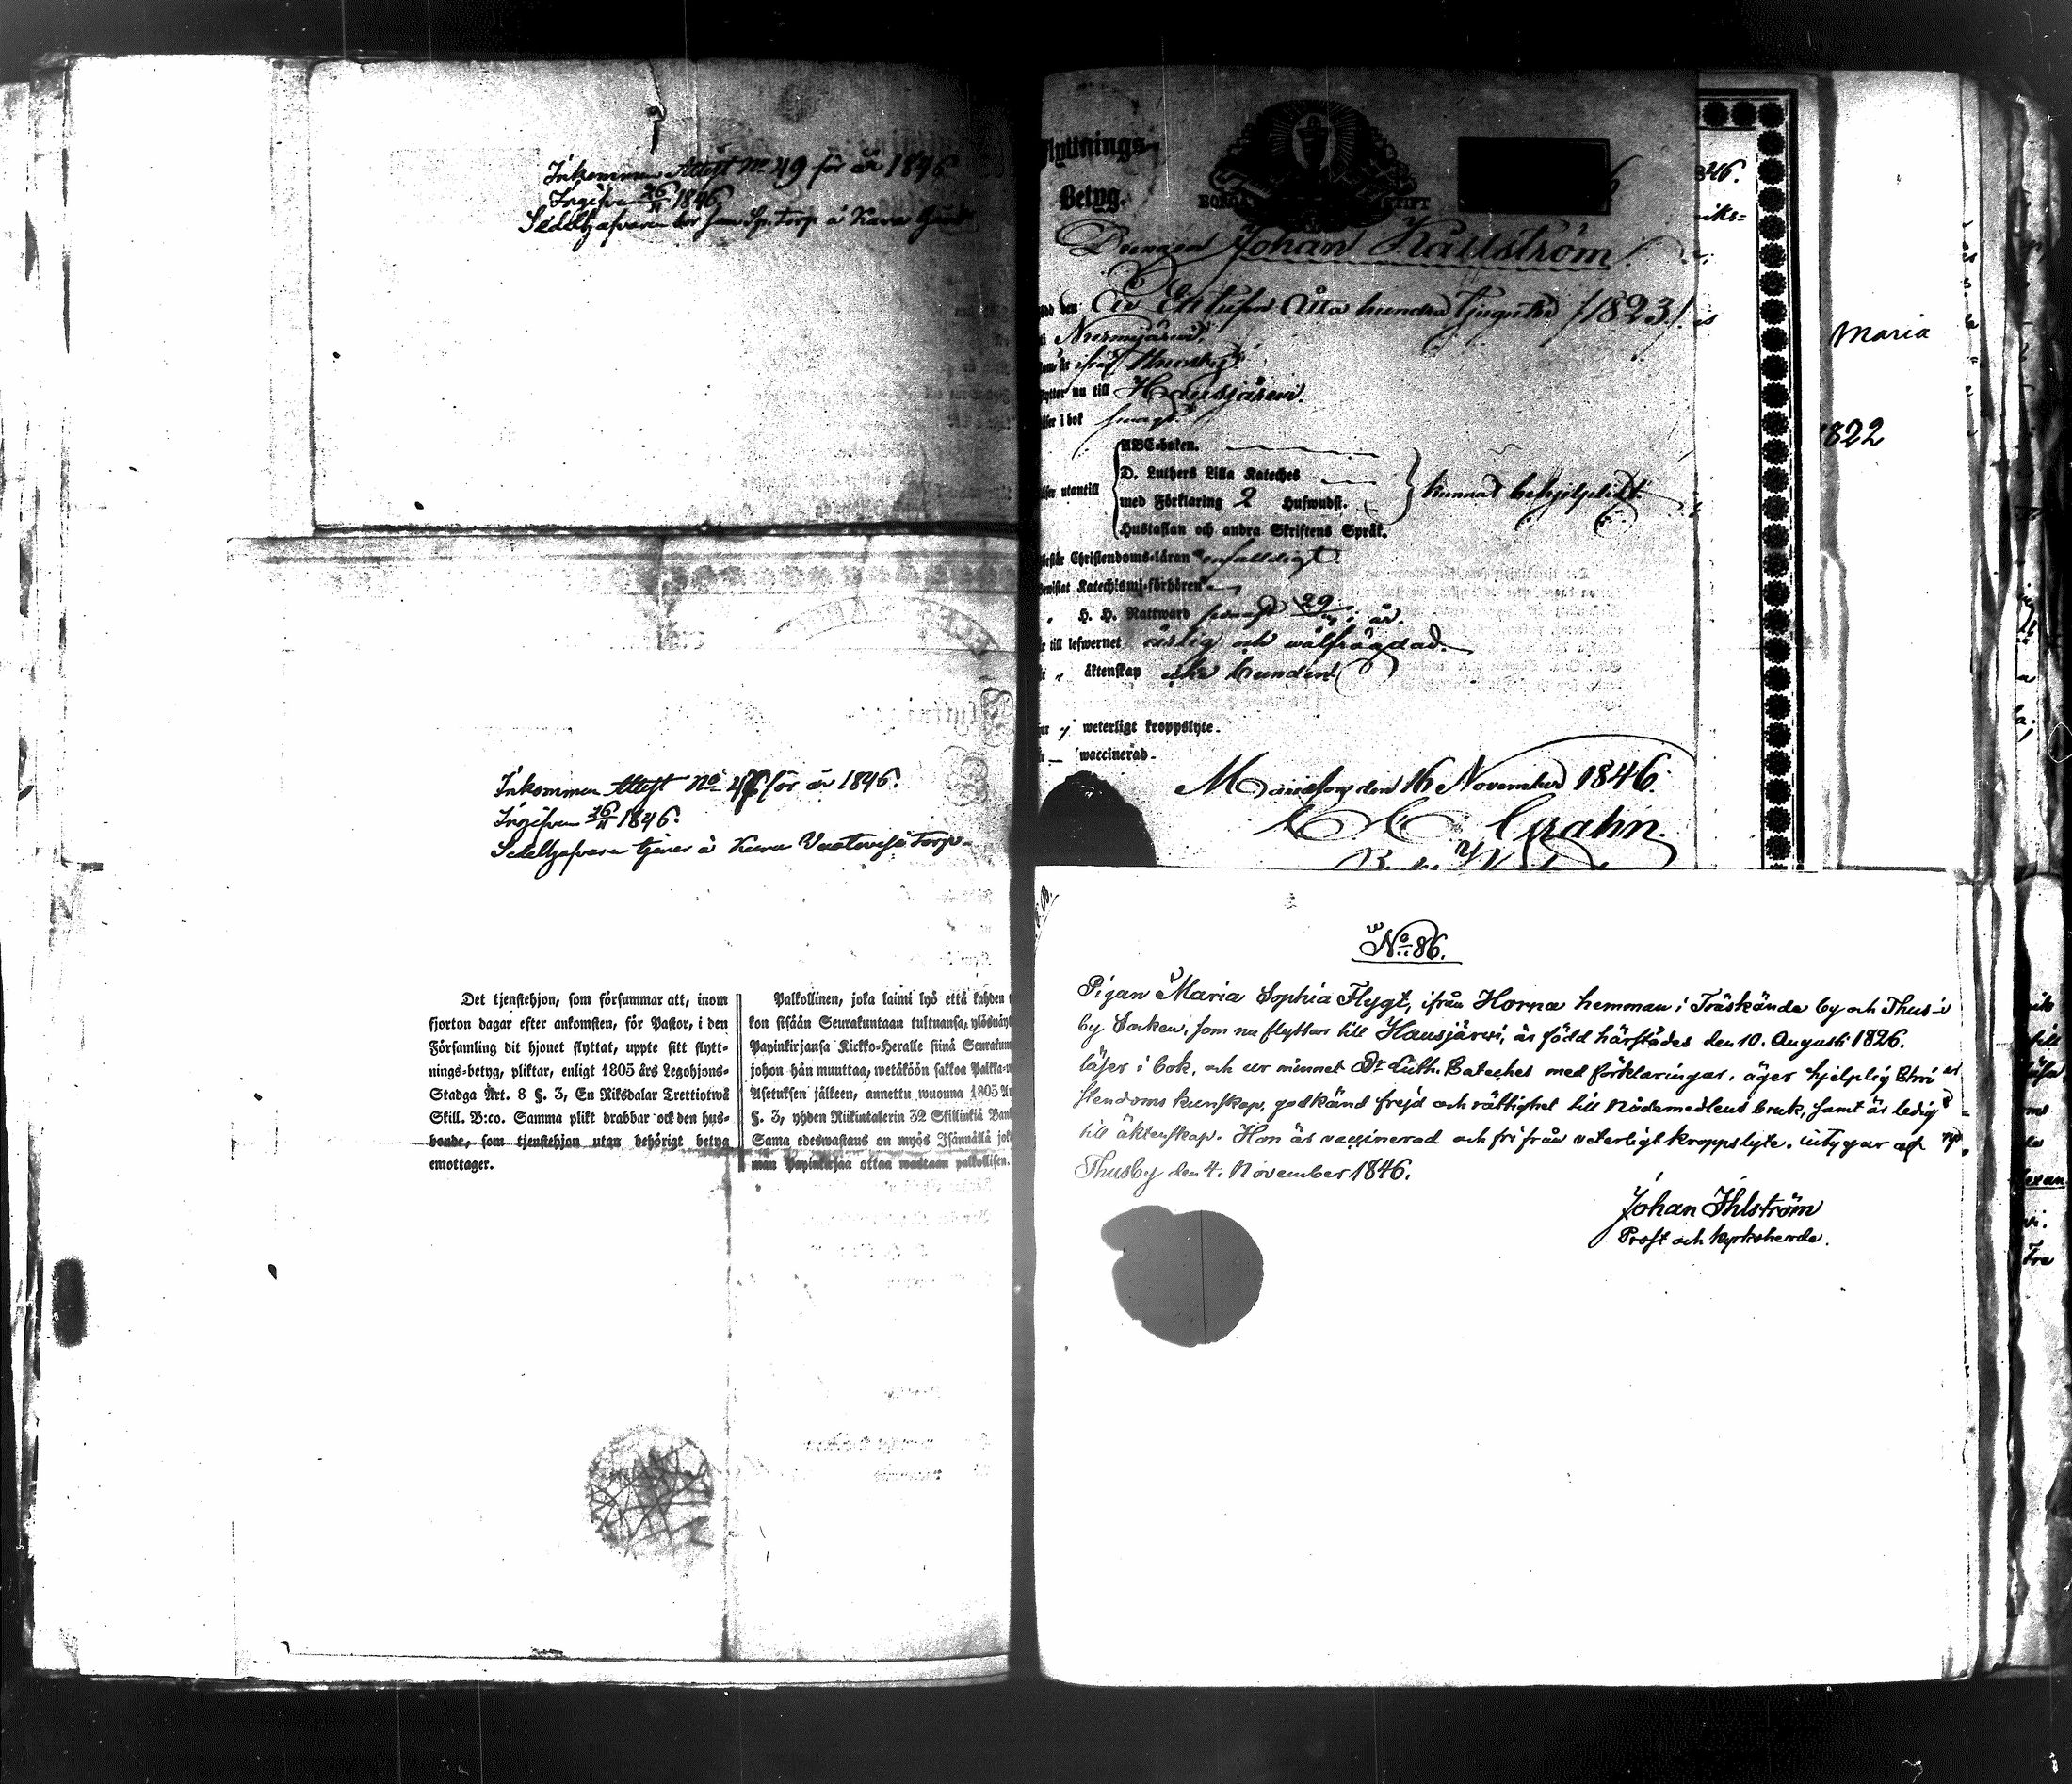 Inkommen Attest No 49 för år 1846
Ingifven 26/11 1846.
Torp å Kara
Inkommen Attest No för år 1846.
Ingifven 26/11 1846.
Sedelhafvaren tjenar å Kara Torp.
Det tjenstehjon, som försummar att, inom
fjorton dagar efter ankomsten, för Pastor, i den
Församling dit hjonet flyttat, uppte sitt flytt-
nings-betyg, pliktar, enligt 1805 års Legohjons-
Stadga Art. 8 §. 3, En Riksdaler Trettiotwå
Skill. B:co. Samma plikt drabbar ock den hus-
bonde, som tjenstehjon utan behörigt betyg
emottager.
Palkollinen, joka laimi lyö että kahden
kon sisään Seurakuntaan tultuansa, ylösnäyt
Papinkirjansa Kirkko-Heralle siinä Seurakun
johon hän muuttaa, wetäköön sakkoa Palkka-
Asetuksen jälkeen, annettu wuonna 1805 Ar
§. 3, yhden Riikintalerin 32 Skillinkiä Ban
Sama edeswastaus on myös Isännällä jok
man Papinkirjaa ottaa wastaan palkollisen.
flyttnings-
Betyg.
BORGÅ STIFT
Drengen Johan Källström
den År Ett tusen Åtta hundra tjugutre /1823/
Nurmijärvi
ifrån
flyttar nu till Hausjärvi.
läser i bok svagt.
ABC-boken.
D. Luthers Lilla Kateches
med Förklaring 2 Hufwudst.
Hustaflan och andra Skriftens Språk.
läser utantill
kunnat behjelpligt
Christendoms-läran enfalldigt.
Katechismi-förhören
H. H. Nattward 29 i år.
till lefwernet ärlig och wälfrägdad.
äktenskap icke bunden
weterligt kroppslyte.
waccinerad.
den 16 November 1846.
Grahn.
846.
Maria
1822
No 86.
Pigan Maria Sophia Flygt, ifrån Horna hemman i Träskända by och Thus-
by Socken, som nu flyttar till Hausjärwi, är född härstädes den 10. Augusti 1826.
läser i bok, och ur minnet Dr Luth. Cateches med förklaringar, äger hjelplig Chri
stendoms kunskap, godkänd frejd och rättighet till Nådemedlens bruk, samt är ledig
till äktenskap. Hon är vaccinerad och fri från veterligt kroppslyte. intygar af
Thusby den 4. November 1846.
Johan Ihlström
Prost och kyrkoherde.